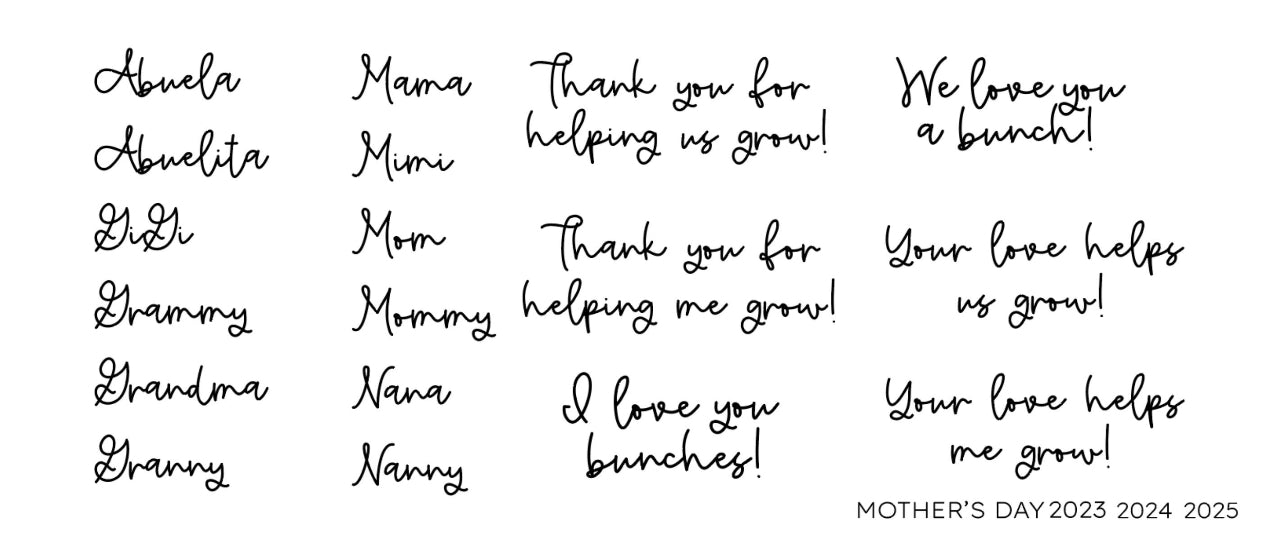 Abuela
Abuelita
GiGi
Grammy
Grandma
Granny
Mama
Mimi
Mom
Mommy
Nana
Nanny
Thank you for
helping us grow!
Thank you for
helping me grow!
I love you
bunches!
We love you
a bunch!
Your love helps
us grow!
Your love helps
me grow!
MOTHER'S DAY 2023 2024 2025